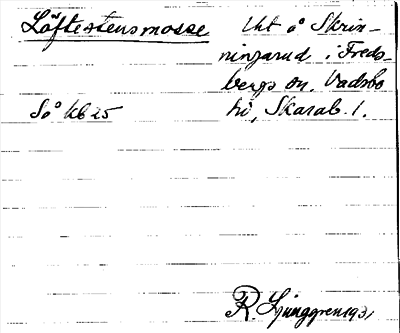 Löftestensmosse
Utt å Skrin-
ningarud i Freds-
bergs sn. Vadsbo
hd, Skarab. l.
So å kb 25
R. Ljunggren 1931